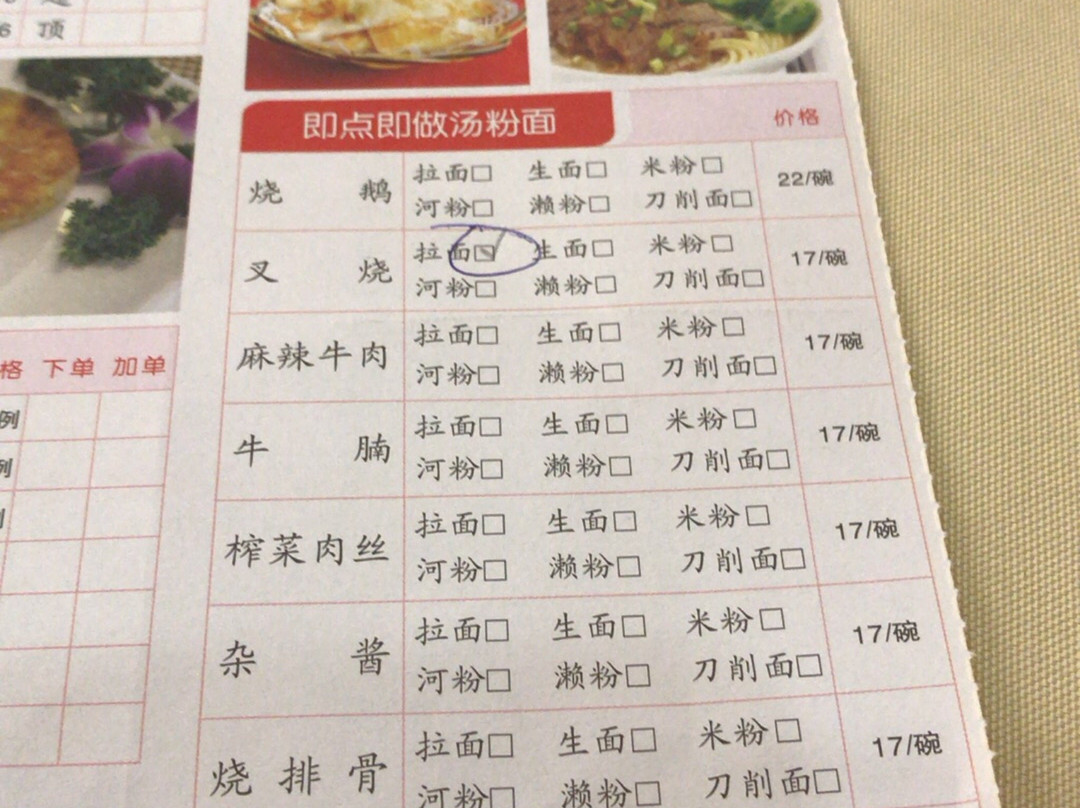 6 顶
格 下单 加单
例
例
即点即做汤粉面 价格
烧鹅 拉面□ 生面□ 米粉□ 22/碗
河粉□ 濑粉□ 刀削面□
叉烧 拉面☑ 生面□ 米粉□ 17/碗
河粉□ 濑粉□ 刀削面□
麻辣牛肉 拉面□ 生面□ 米粉□ 17/碗
河粉□ 濑粉□ 刀削面□
牛腩 拉面□ 生面□ 米粉□ 17/碗
河粉□ 濑粉□ 刀削面□
榨菜肉丝 拉面□ 生面□ 米粉□ 17/碗
河粉□ 濑粉□ 刀削面□
杂酱 拉面□ 生面□ 米粉□ 17/碗
河粉□ 濑粉□ 刀削面□
烧排骨 拉面□ 生面□ 米粉□ 17/碗
河粉□ 濑粉□ 刀削面□